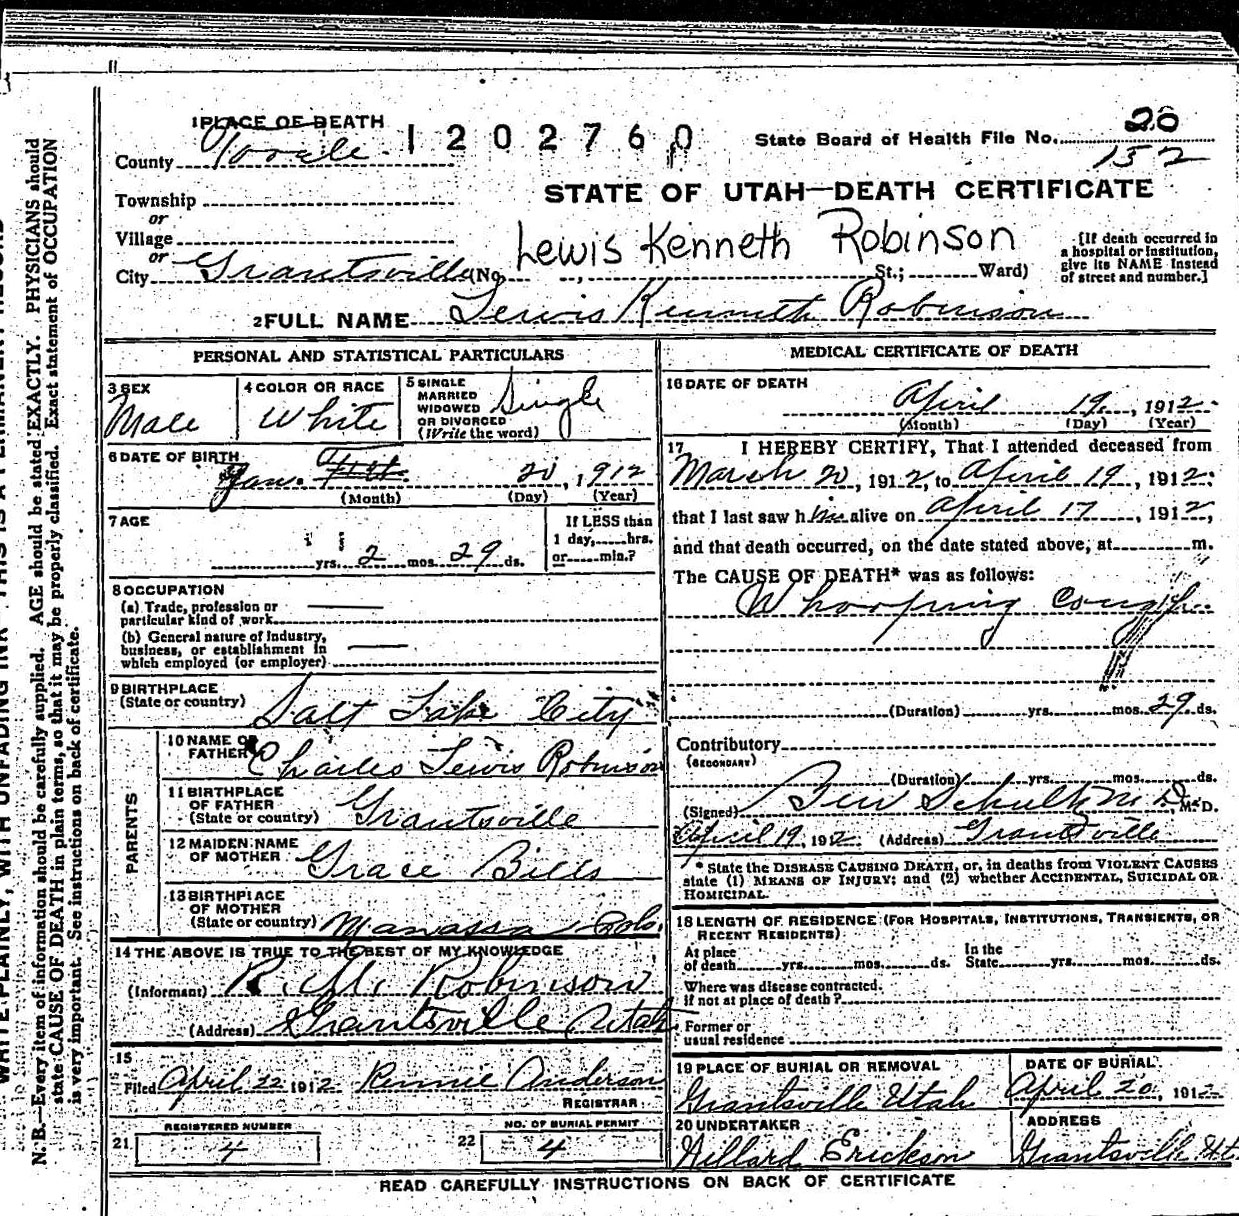 1 PLACE OF DEATH
1202760
State Board of Health File No. 20
152
County Tooele
STATE OF UTAH—DEATH CERTIFICATE
Township
or
Village
or
City Grantsville (No. St.; Ward)
Lewis Kenneth Robinson
[If death occurred in a hospital or institution, give its NAME instead of street and number.]
2 FULL NAME Lewis Kenneth Robinson
PERSONAL AND STATISTICAL PARTICULARS
3 SEX
Male
4 COLOR OR RACE
White
5 SINGLE
MARRIED
WIDOWED
OR DIVORCED
(Write the word)
Single
6 DATE OF BIRTH
Jan. 20, 1912
(Month) (Day) (Year)
7 AGE
yrs. 2 mos. 29 ds.
If LESS than
1 day, hrs.
or min.?
8 OCCUPATION
(a) Trade, profession or
particular kind of work
(b) General nature of Industry,
business, or establishment in
which employed (or employer)
9 BIRTHPLACE
(State or country) Salt Lake City
PARENTS
10 NAME OF
FATHER Charles Lewis Robinson
11 BIRTHPLACE
OF FATHER
(State or country) Grantsville
12 MAIDEN NAME
OF MOTHER Grace Bills
13 BIRTHPLACE
OF MOTHER
(State or country) Manassa Colo.
14 THE ABOVE IS TRUE TO THE BEST OF MY KNOWLEDGE
(Informant) R. M. Robinson
(Address) Grantsville Utah
15
Filed April 22 1912 Rennie Anderson
REGISTRAR
21 REGISTERED NUMBER
4
22 NO. OF BURIAL PERMIT
4
MEDICAL CERTIFICATE OF DEATH
16 DATE OF DEATH
April 19, 1912
(Month) (Day) (Year)
17 I HEREBY CERTIFY, That I attended deceased from
March 20, 1912, to April 19, 1912,
that I last saw him alive on April 17, 1912,
and that death occurred, on the date stated above, at m.
The CAUSE OF DEATH* was as follows:
Whooping cough
(Duration) yrs. mos. 29 ds.
Contributory
(SECONDARY)
(Duration) yrs. mos. ds.
(Signed) M.D.
April 19, 1912 (Address) Grantsville
* State the DISEASE CAUSING DEATH, or, in deaths from VIOLENT CAUSES
state (1) MEANS OF INJURY; and (2) whether ACCIDENTAL, SUICIDAL OR
HOMICIDAL.
18 LENGTH OF RESIDENCE (FOR HOSPITALS, INSTITUTIONS, TRANSIENTS, OR
RECENT RESIDENTS)
At place
of death yrs. mos. ds. In the
State yrs. mos. ds.
Where was disease contracted.
if not at place of death?
Former or
usual residence
19 PLACE OF BURIAL OR REMOVAL
Grantsville Utah
DATE OF BURIAL
April 20, 1912
20 UNDERTAKER
Willard Erickson
ADDRESS
Grantsville Ut.
READ CAREFULLY INSTRUCTIONS ON BACK OF CERTIFICATE
N. B.—Every item of information should be carefully supplied. AGE should be stated EXACTLY. PHYSICIANS should
state CAUSE OF DEATH in plain terms, so that it may be properly classified. Exact statement of OCCUPATION
is very important. See instructions on back of certificate.